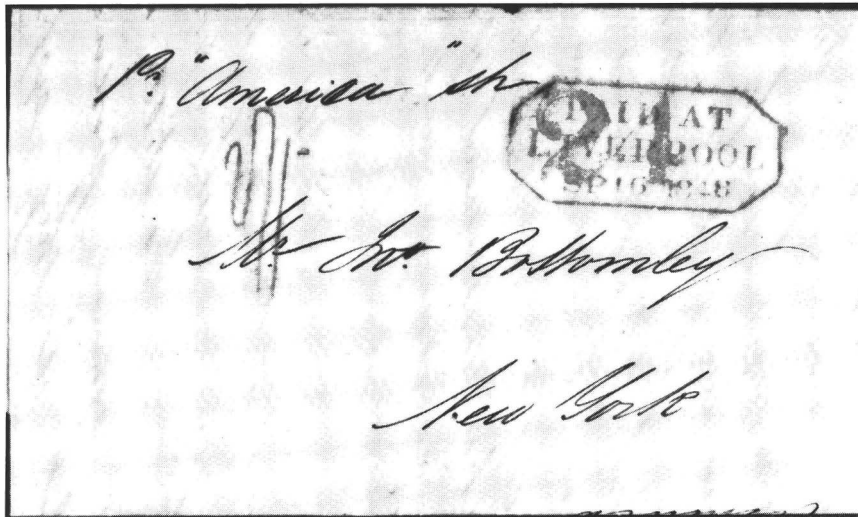 Pr "America" sh
PAID AT
LIVERPOOL
SP 16 1848
24
Mr Jno. Bottomley
New York